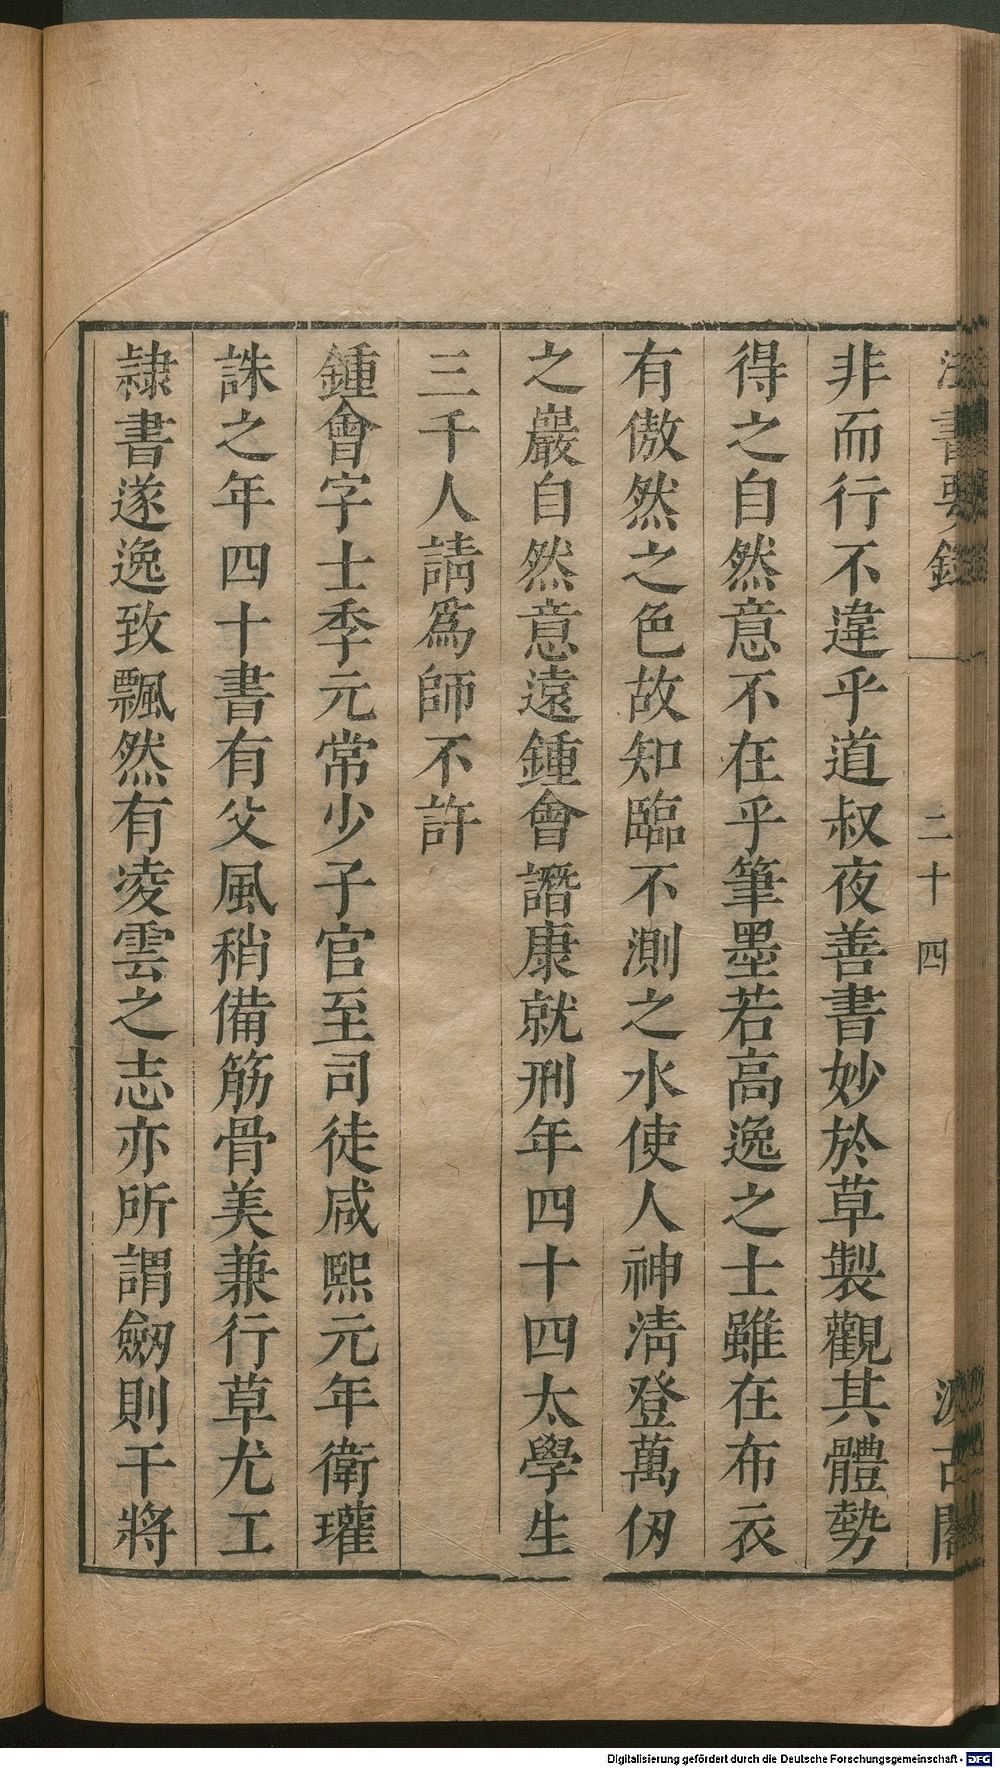 法書要錄
二十四
汲古閣
非而行不違乎道叔夜善書妙於草製觀其體勢
得之自然意不在乎筆墨若高逸之士雖在布衣
有傲然之色故知臨不測之水使人神清登萬仞
之巖自然意遠鍾會譖康就刑年四十四太學生
三千人請爲師不許
鍾會字士季元常少子官至司徒咸熙元年衛瓘
誅之年四十書有父風稍備筋骨美兼行草尤工
隷書遂逸致飄然有凌雲之志亦所謂劒則干將
Digitalisierung gefördert durch die Deutsche Forschungsgemeinschaft - DFG